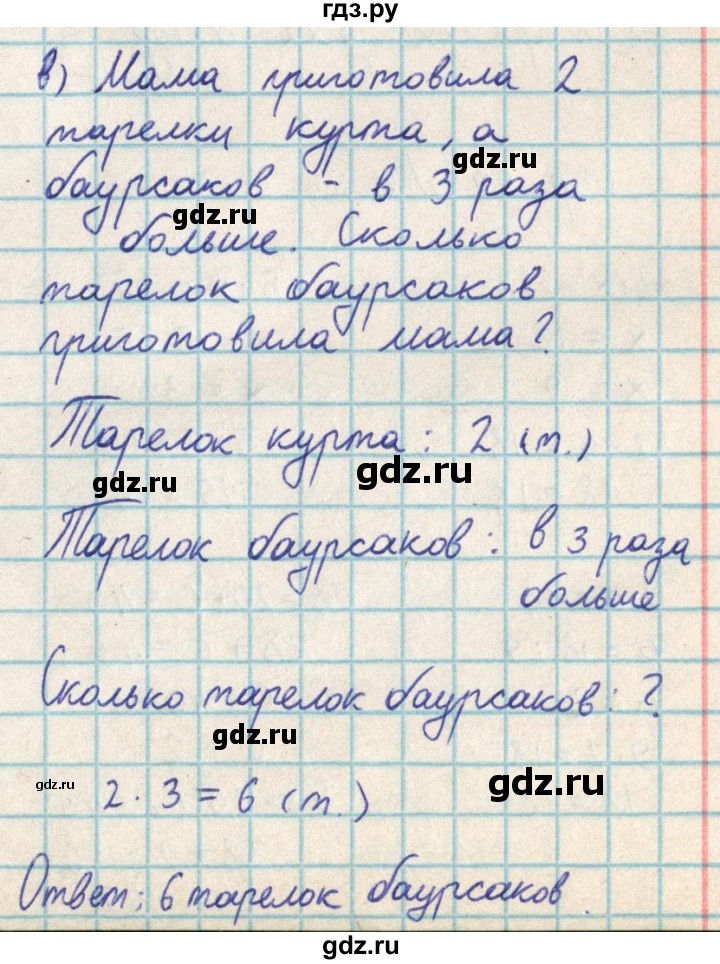 гдз.ру
в) Мама приготовила 2
тарелки курта, а
gdz.ru
баурсаков - в 3 раза
gdz.ru
больше. Сколько
тарелок баурсаков
приготовила мама?
Тарелок курта: 2 (т.)
gdz.ru
gdz.ru
Тарелок баурсаков: в 3 раза
больше
Сколько тарелок баурсаков: ?
gdz.ru
gdz.ru
2 · 3 = 6 (т.)
gdz.ru
Ответ: 6 тарелок баурсаков.
gdz.ru